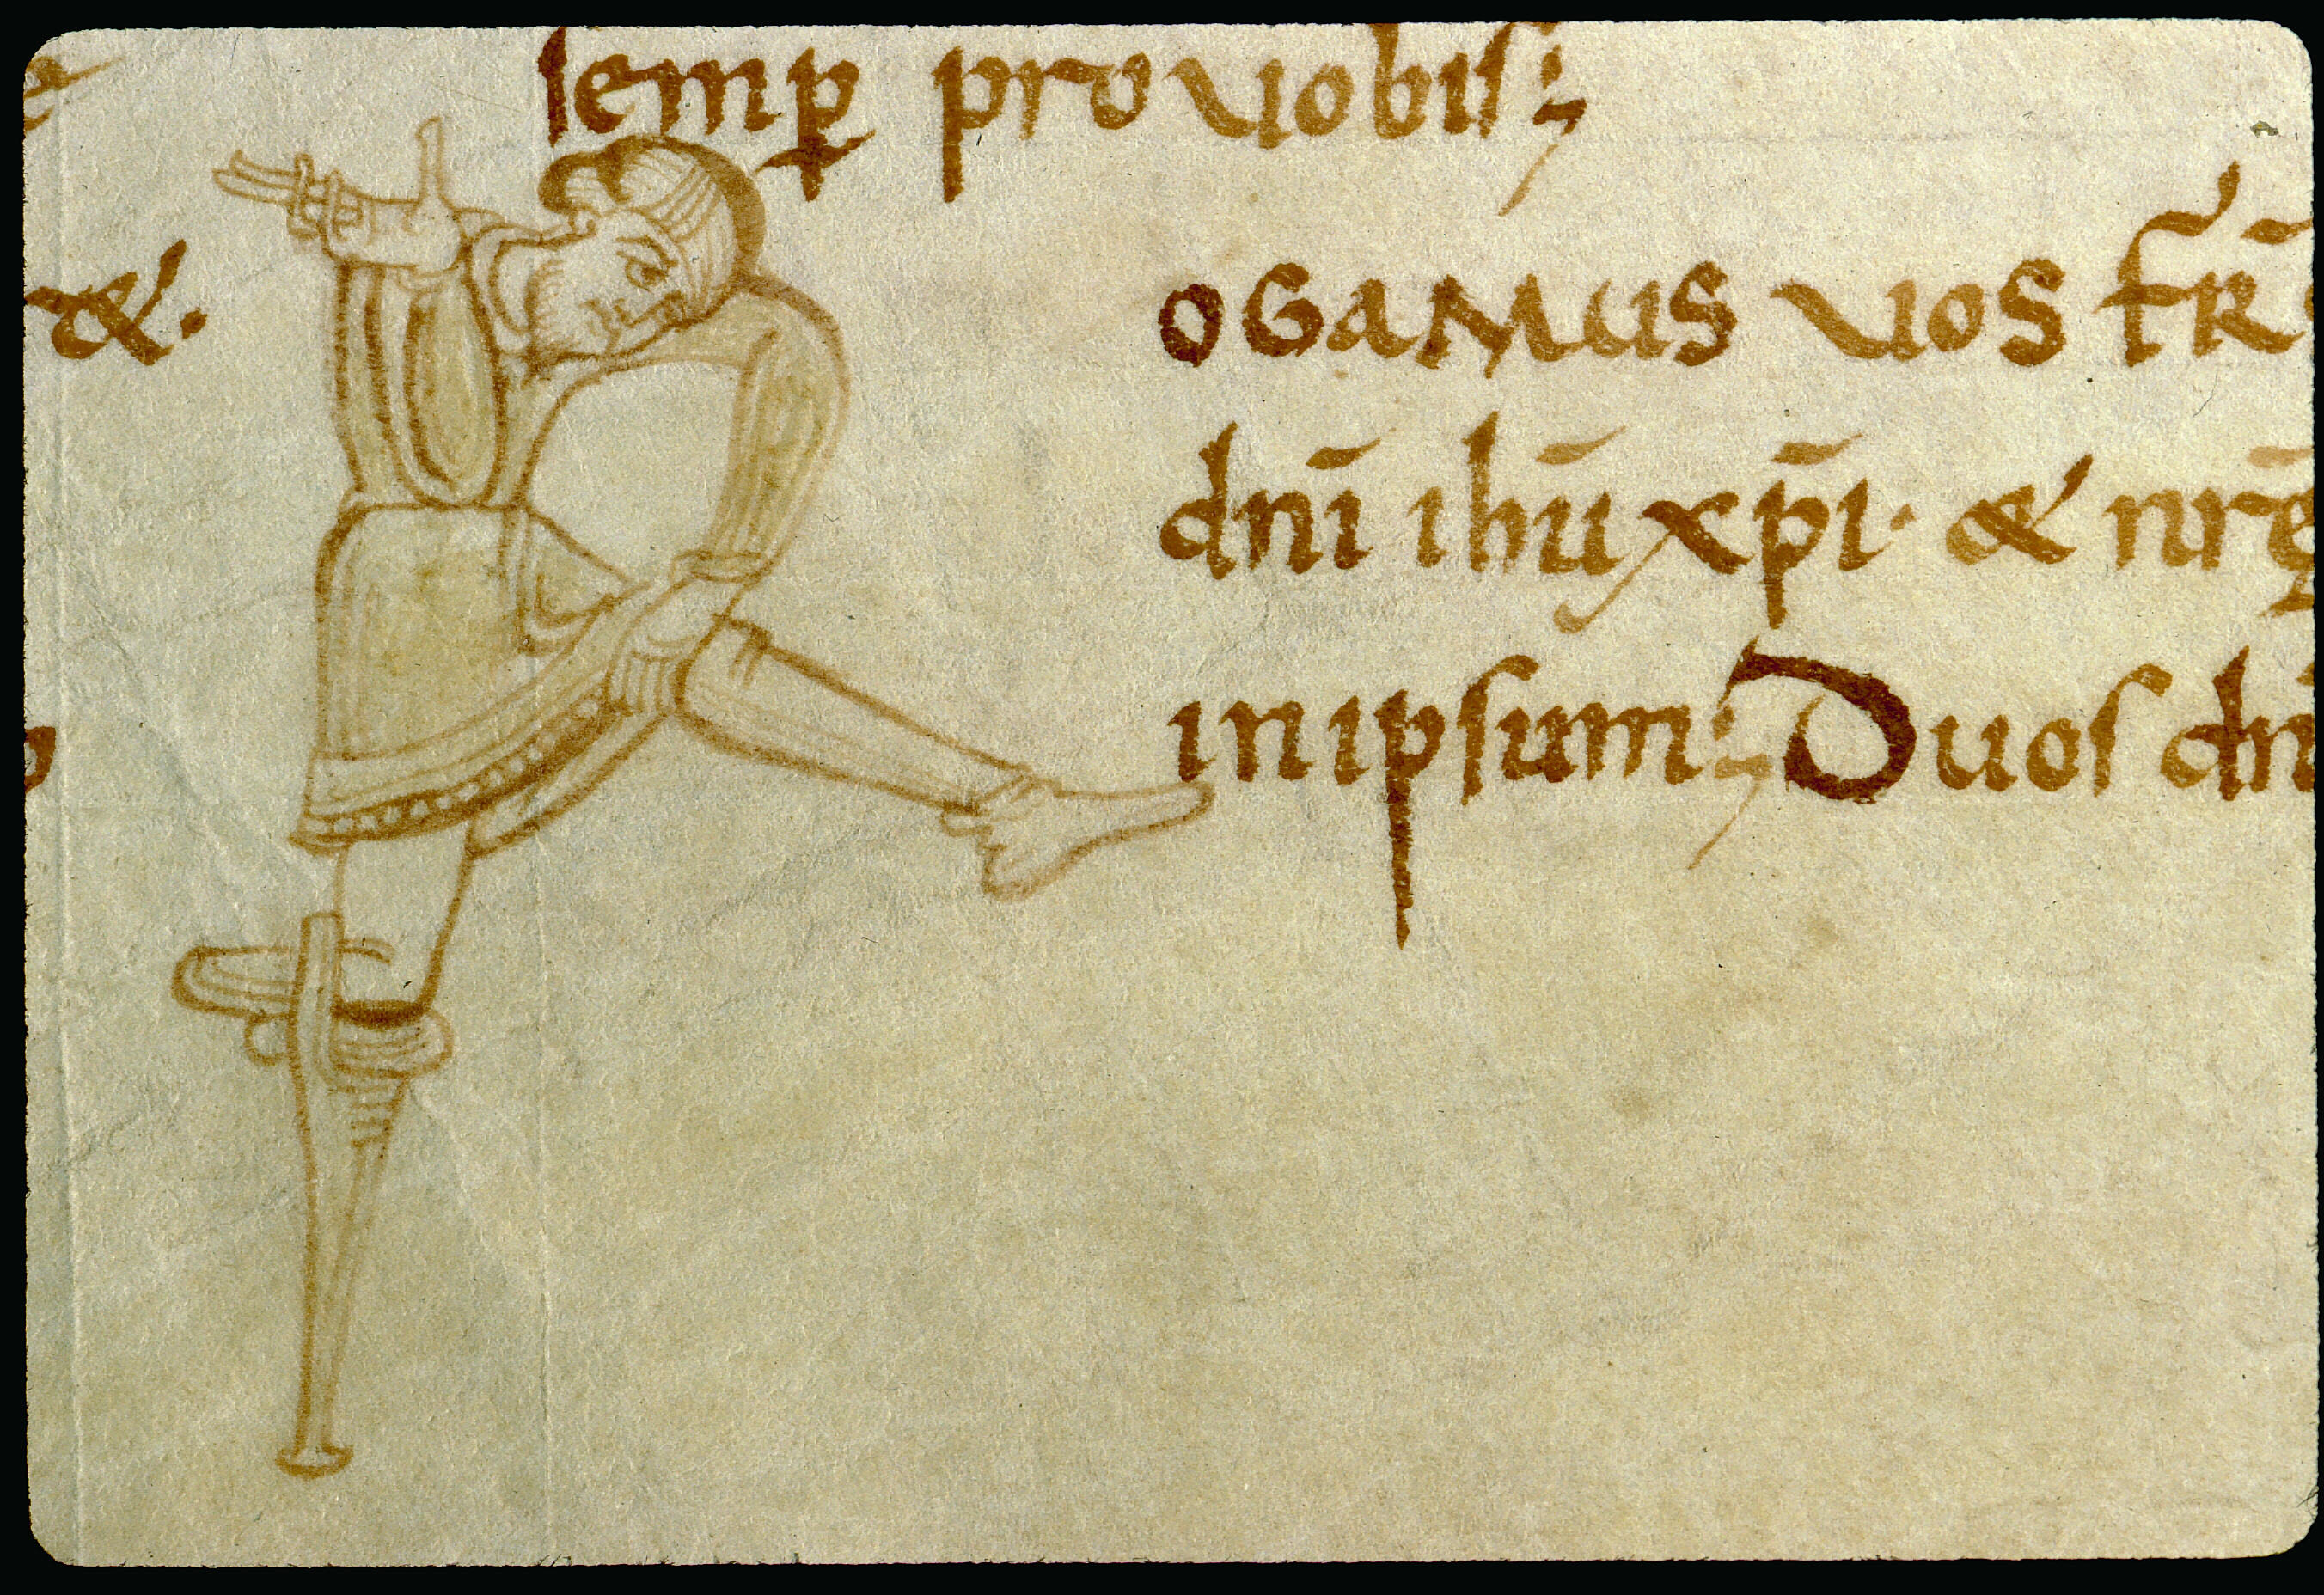 semꝑ pro uobis;
&.
ogamus uos fr̄
dn̄i ihū xp̄i· & nr̄ę
in ipsum; Duos dn̄i